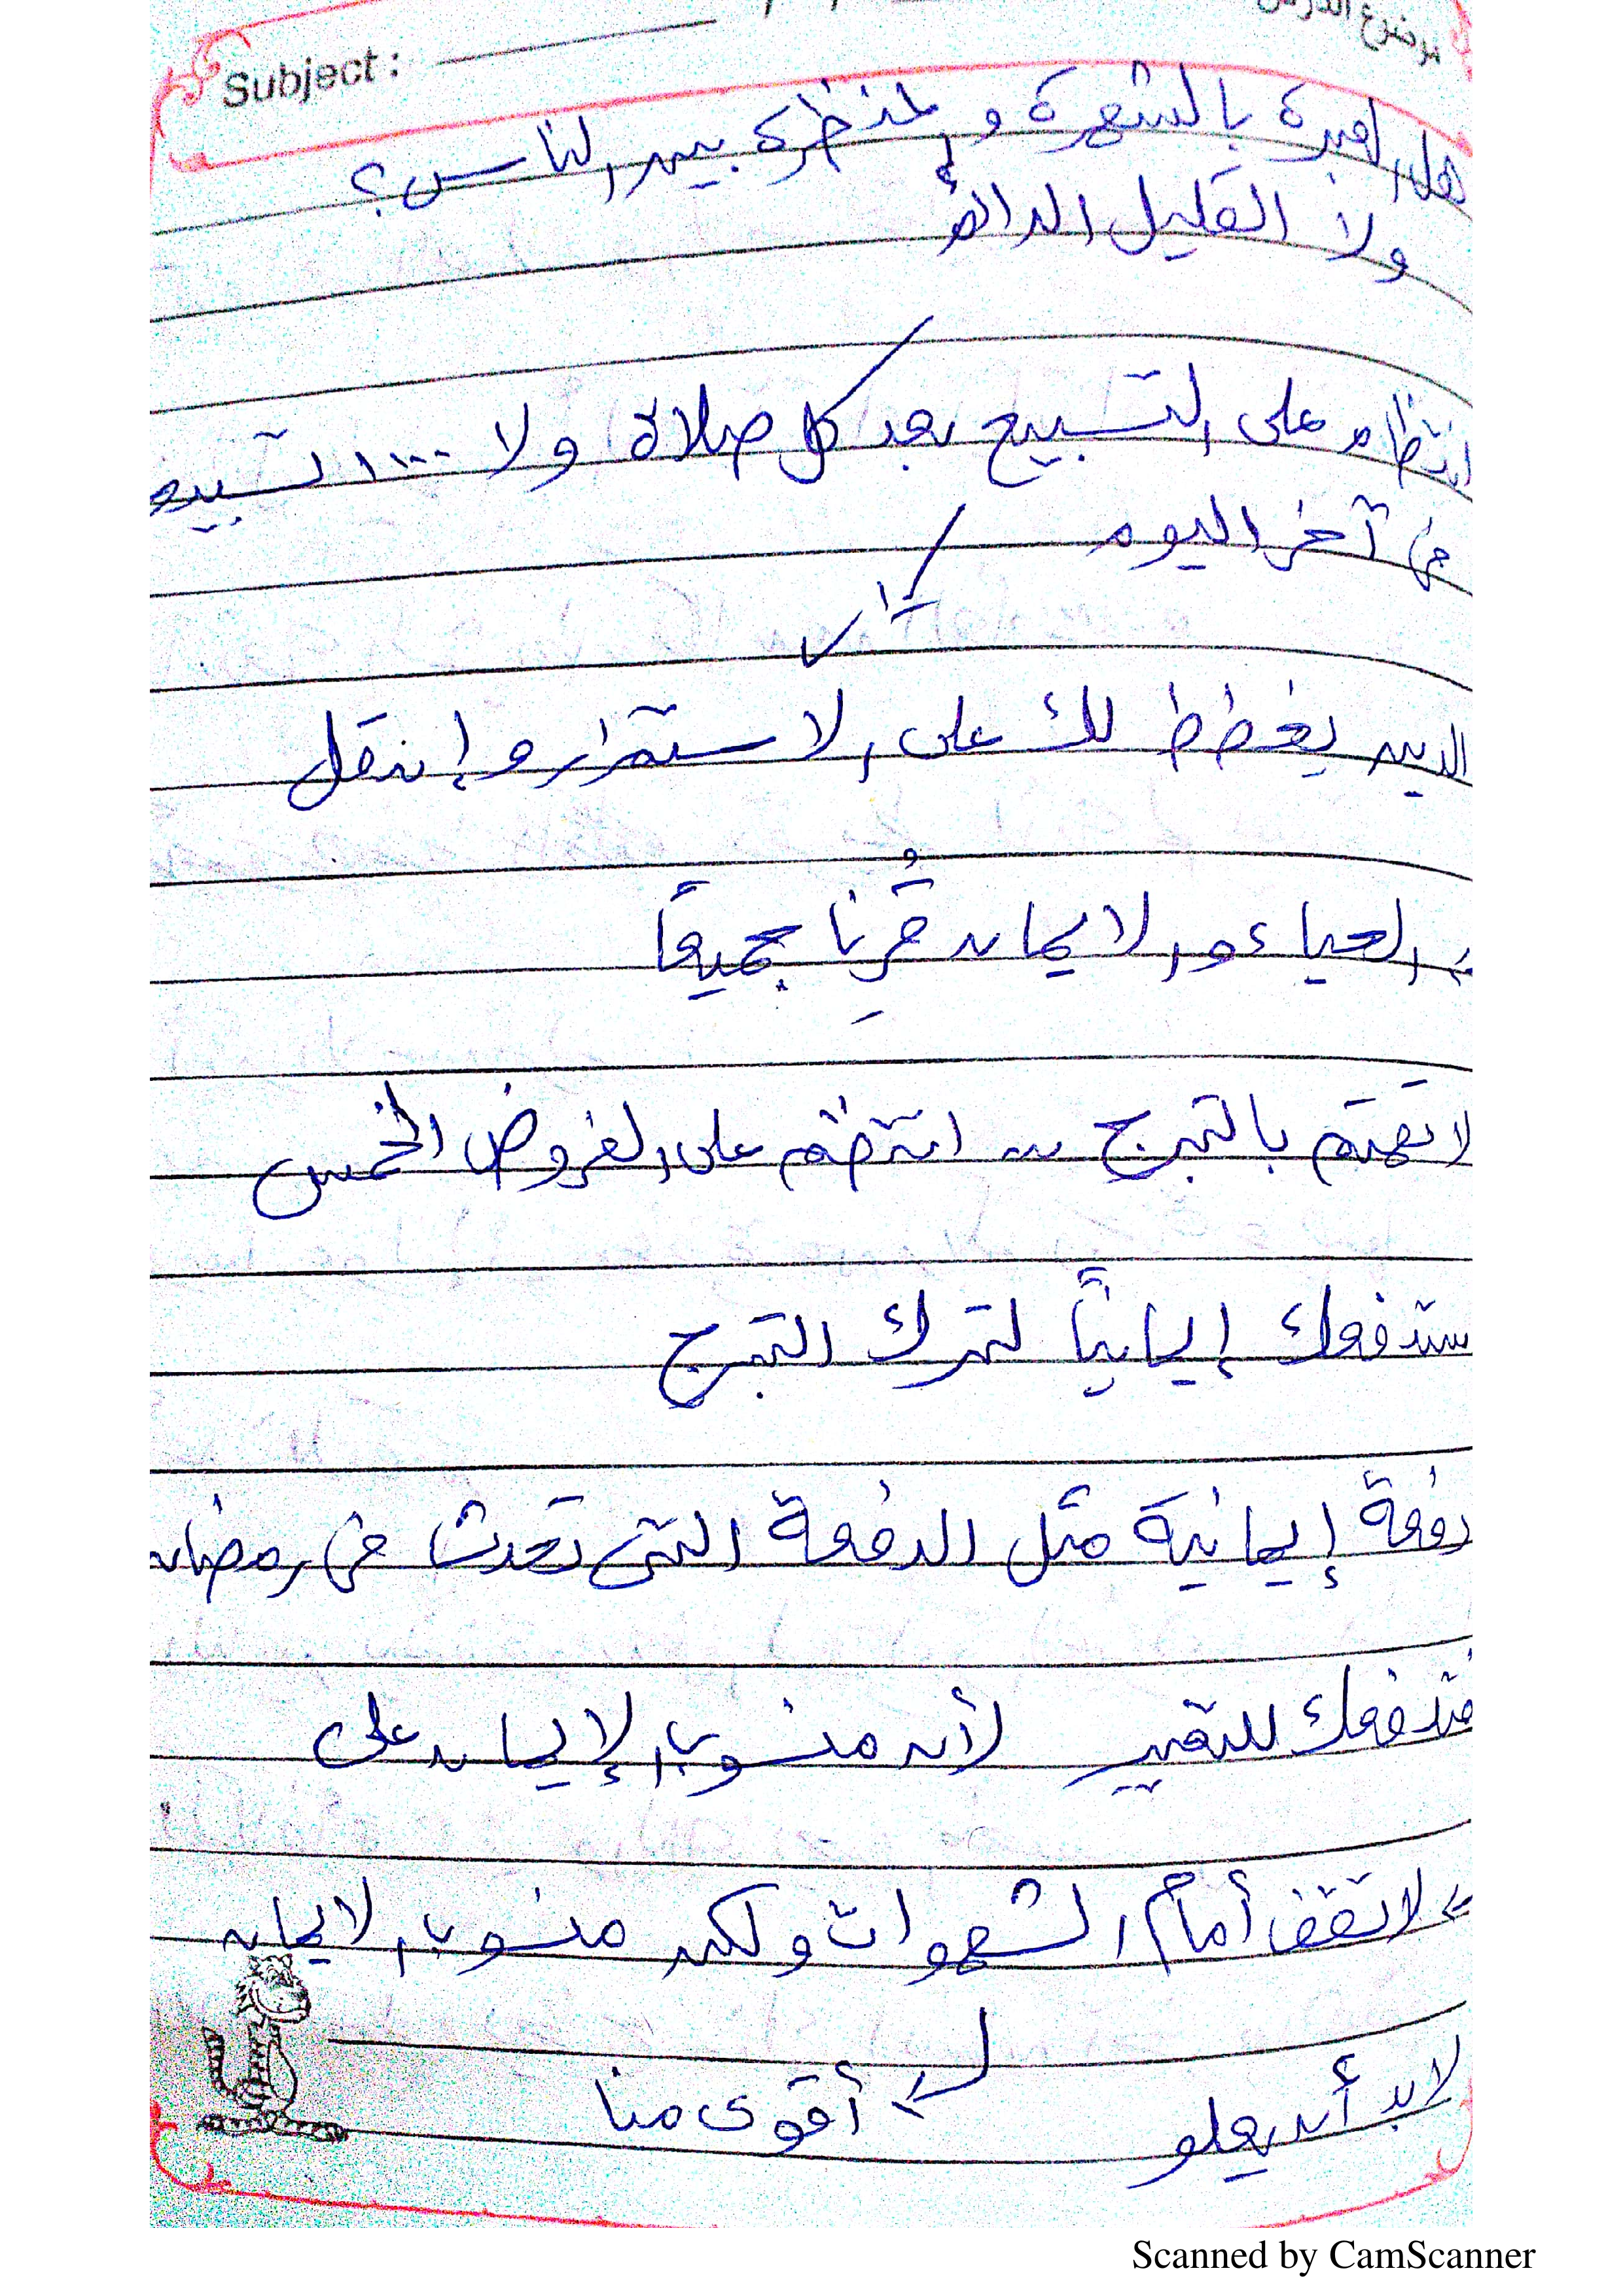 موضوع الدرس
Subject :
هل العبرة بالشهرة والمنظرة بين الناس؟
ولا القليل الدائم
انتظام على التسبيح بعد كل صلاة ولا ١٠٠٠ تسبيحة
في آخر اليوم
الدين يخطط لك على الاستمرار وإن قل
الحياء والايمان قُرِنا جميعًا
لا تهتم بالتبرج .. انتظم على الفروض الخمس
ستدفعك إيمانيًا لترك التبرج
دفعة إيمانية مثل الدفعة التي تحدث في رمضان
فتدفعك للتغيير لأن منسوب الإيمان على
لا تقف أمام الشهوات ولكن منسوب الايمان
لابد أن يعلو أقوى منا
Scanned by CamScanner